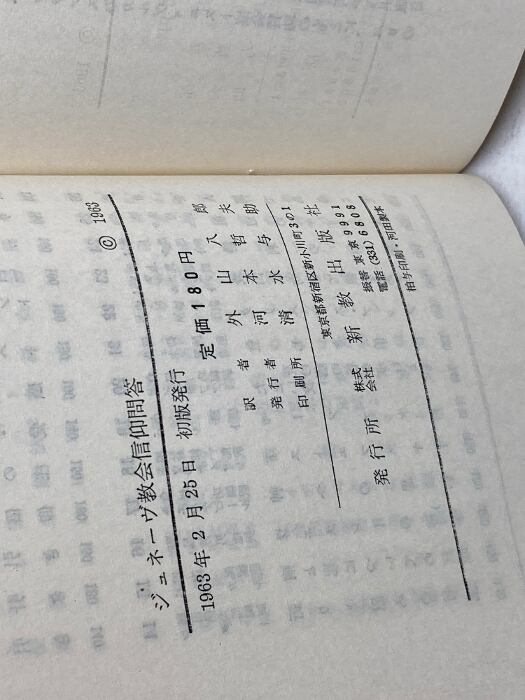 ジュネーヴ教会信仰問答 © 1963
1963年2月25日 初版発行 定価180円
訳者 外山八郎
発行者 河本哲夫
印刷所 清水与助
東京都新宿区新小川町3の1
発行所 株式会社 新教出版社
振替 東京 9991
電話 (331) 6808
柏与印刷・河田製本